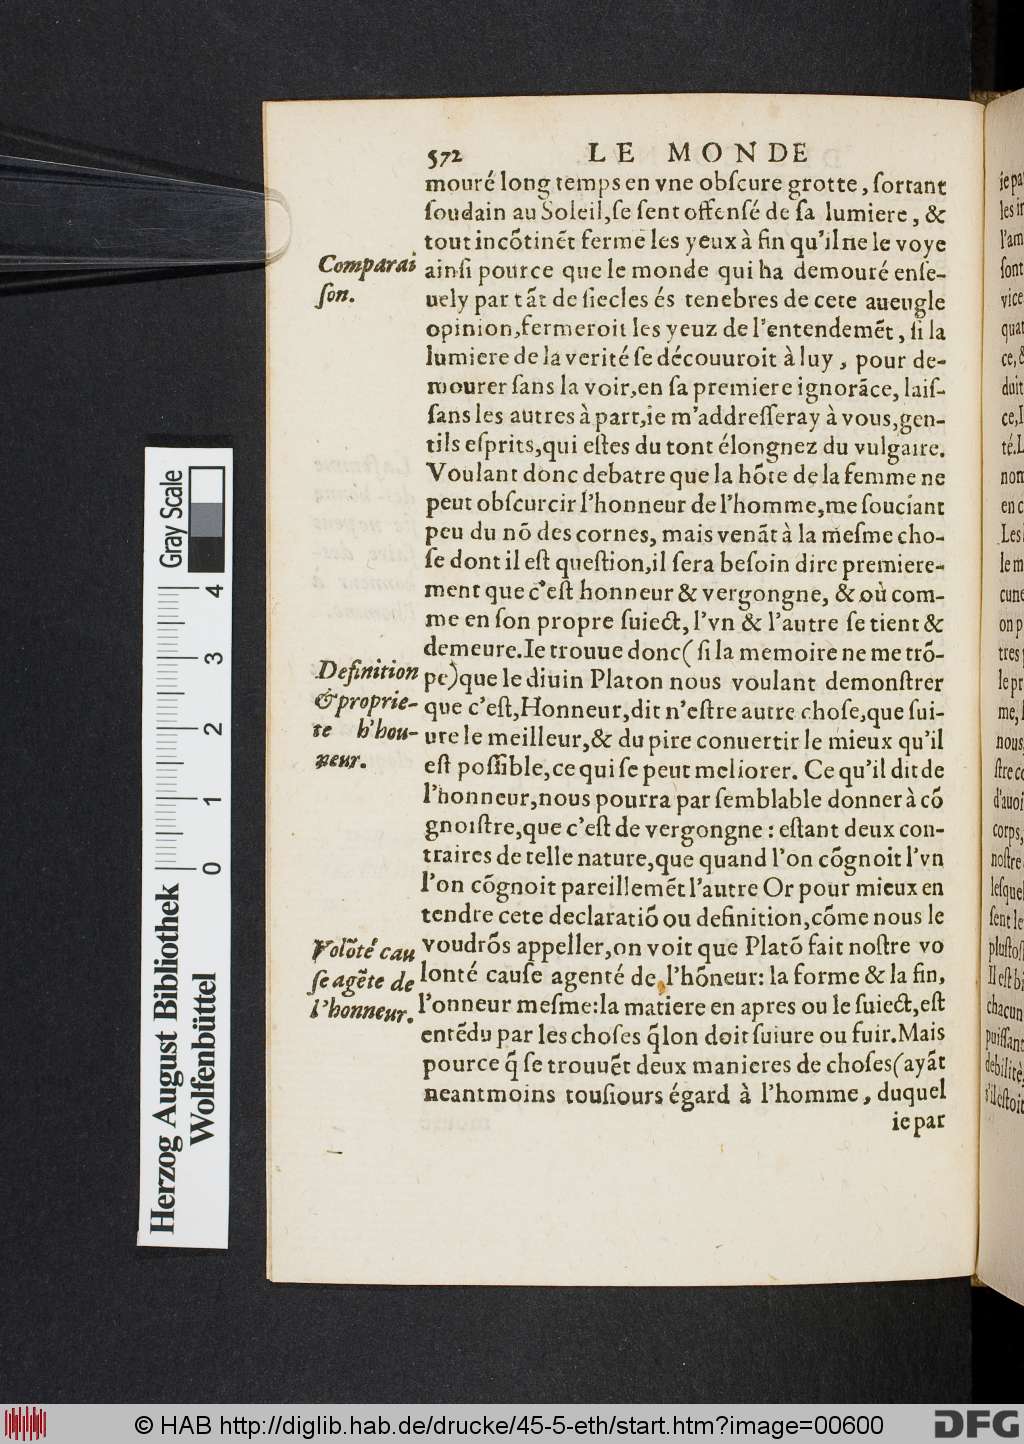 572 LE MONDE
mouré long temps en vne obſcure grotte, ſortant
ſoudain au Soleil, ſe ſent offenſé de ſa lumiere, &
tout incõtinẽt ferme les yeux à fin qu'il ne le voye
ainſi pource que le monde qui ha demouré enſe-
uely par tãt de ſiecles és tenebres de cete aueugle
opinion, fermeroit les yeuz de l'entendemẽt, ſi la
lumiere de la verité ſe découuroit à luy, pour de-
mourer ſans la voir, en ſa premiere ignorãce, laiſ-
ſans les autres à part, ie m'addreſſeray à vous, gen-
tils eſprits, qui eſtes du tont élongnez du vulgaire.
Voulant donc debatre que la hõte de la femme ne
peut obſcurcir l'honneur de l'homme, me ſouciant
peu du nõ des cornes, mais venãt à la meſme cho-
ſe dont il eſt queſtion, il ſera beſoin dire premiere-
ment que c'eſt honneur & vergongne, & où com-
me en ſon propre ſuiect, l'vn & l'autre ſe tient &
demeure. Ie trouue donc (ſi la memoire ne me trõ-
pe) que le diuin Platon nous voulant demonſtrer
que c'eſt, Honneur, dit n'eſtre autre choſe, que ſui-
ure le meilleur, & du pire conuertir le mieux qu'il
eſt poſſible, ce qui ſe peut meliorer. Ce qu'il dit de
l'honneur, nous pourra par ſemblable donner à cõ
gnoiſtre, que c'eſt de vergongne : eſtant deux con-
traires de telle nature, que quand l'on cõgnoit l'vn
l'on cõgnoit pareillemẽt l'autre Or pour mieux en
tendre cete declaratiõ ou definition, cõme nous le
voudrõs appeller, on voit que Platõ fait noſtre vo
lonté cauſe agenté de l'hõneur: la forme & la fin,
l'onneur meſme: la matiere en apres ou le ſuiect, eſt
entẽdu par les choſes q̃ lon doit ſuiure ou fuir. Mais
pource q̃ ſe trouuẽt deux manieres de choſes (ayãt
neantmoins touſiours égard à l'homme, duquel
ie par
Comparai
ſon.
Definition
& proprie-
te h'hou-
neur.
Volõté cau
ſe agẽte de
l'honneur.
ie pa
les in
l'am
ſont
vice
quat
ce, &
duit
ce, I
té. L
non
en c
Les
le m
cune
on p
tres
le pr
me,
nous,
ſtre co
d'auoi
corps,
noſtre
leſquel
ſent le
pluſtoſ
Il eſt bi
chacun
puiſſant
debilitè,
s'il eſtoit
Gray Scale
0 1 2 3 4
Herzog August Bibliothek
Wolfenbüttel
© HAB http://diglib.hab.de/drucke/45-5-eth/start.htm?image=00600
DFG